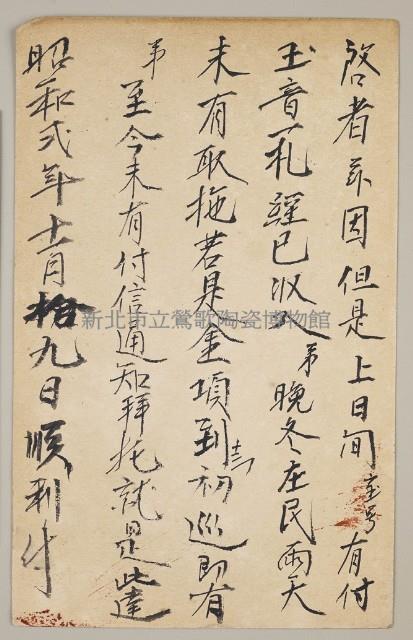 啓者茶因但是上日間宝号有付
玉音一札經已收入弟晚冬庄民雨天
未有取拖若是金項到十二初巡即有
弟
至今未有付信通知拜托就是此達
昭和弍年十二月拾九日順利付
新北市立鶯歌陶瓷博物館